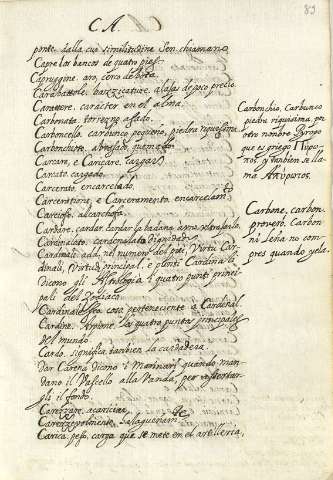 C A.
89
ponte, dalla cui similitudine son chiamati
Capre los bancos de quatro pies.
Capruggine, aro, cerco de bota.
Carabattole, bazzicature, alajas de poco precio
Carattere, carácter en el alma.
Carbonata, torrezno asado.
Carboncello, carbunco pequeño, piedra riquissima
Carbonchioso,
Carcare, e Caricare, cargar
Carcato, cargado.
Carcerato, encarcelado.
Carceratione, e Carceramento, encarcelamto
Carcioffo, alcarchofa.
Cardare, cardar
Cardinalato, cardenalato dignidad.
Cardinale add. nel numero del più, Virtù Car-
dinali, Virtud principal, e Ponti Cardinali
dicono gli Astrologi i quatro punti princi-
pali del Zodiaco.
Cardinalesco, cosa perteneciente a Cardenal
Cardine, los quatro puntos principales
del mundo.
Cardo, significa tambien la cardadera.
Dar Carena dicono i Marinari quando man-
dano il Vassello alla banda, per
gli il fondo.
Carezzare, acariciar.
Carezzevolmente, halaguenamte
Carica, peso, carga que se mete en el artilleria,
Carbonchio, Carbunco
piedra riquissima, per
otro nombre Piropo
que es griego
y tambien se lla-
ma
Carbone, carbon
proverb. Carbon-
ni lena no com-
pres quando yela.